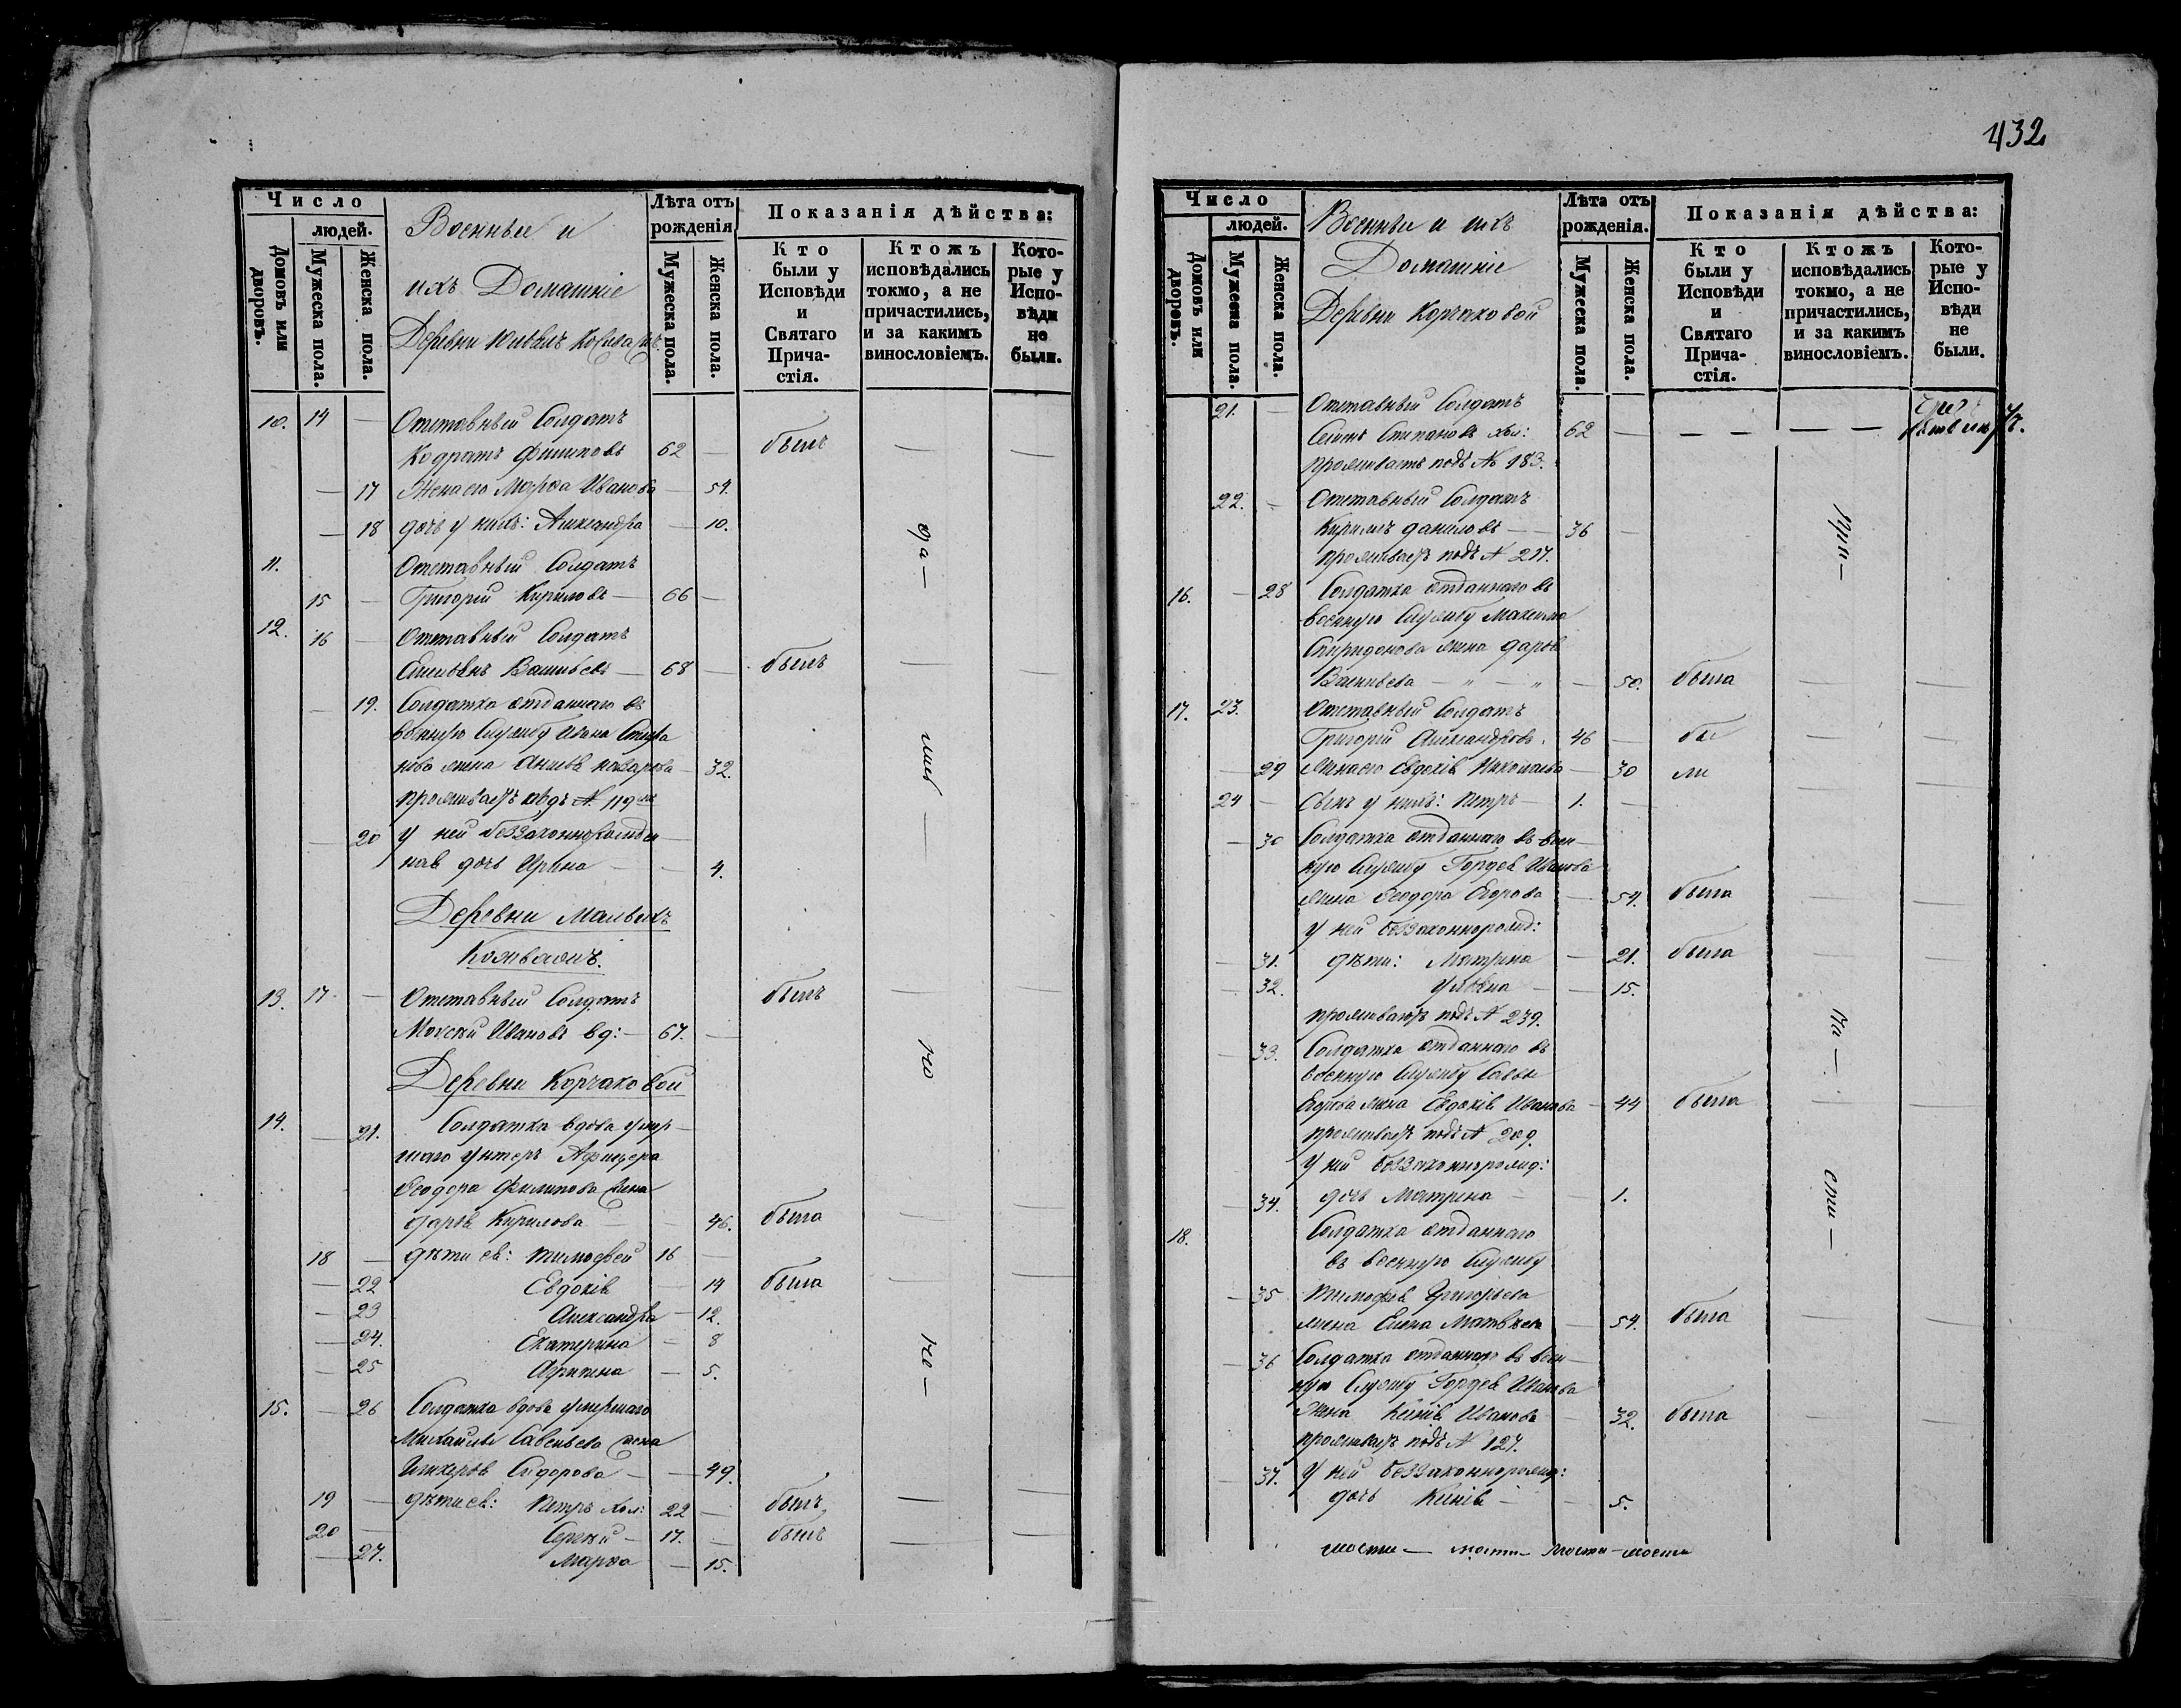 432
Число
людей.
Домовъ или дворовъ.
Мужеска пола.
Женска пола.
Военные и
ихъ Домашніе
Деревни
Лѣта отъ рожденія
Мужеска пола.
Женска пола.
Показанія дѣйства:
Кто были у Исповѣди и Святаго Прича-стія.
Ктожъ исповѣдались токмо, а не причастились, и за какимъ винословіемъ.
Кото-рые у Испо-вѣди не были.
10. 14 — Отставный Солдатъ
Кодратъ Филиповъ 62 — былъ — —
— 17 Жена его Марѳа Иванова — 54.
— 18 дочь у нихъ: Александра — 10.
11. Отставный Солдатъ
15 — Григорій Кириловъ — 66 —
12. 16 — Отставный Солдатъ
Емельянъ Васильевъ — 68 — былъ — —
— 19. Солдатка отданнаго въ
военную Службу Ивана Степа
нова жена Анисья — 32.
проживаетъ подъ № 119
— 20 у ней беззаконнорожден
ная дочь Ирина — — 4.
Деревни Малыхъ
13. 17 — Отставный Солдатъ былъ — —
Моисей Ивановъ вд: — 67. —
Деревни Корчаковой
14. — 21. Солдатка вдова умер-
шаго Унтеръ Афицера
Ѳеодора Филипова жена
Дарья Кирилова — — 46. была — —
18 — дѣти ея: Тимофей 16 —
— 22 Евдокія — 14 была — —
— 23 Александра — 12.
— 24. Екатерина — 8
— 25 Агрипина — 5.
15. — 26 Солдатка вдова умершаго
Михаила Савельева жена
Гликерья Сидорова — — 49.
19 — дѣти ея: Петръ хол: 22 — былъ — —
20 — Сергѣй — 17. — былъ — —
— 27. Марѳа — 15.
да —
лѣе —
го
че —
Число
людей.
Домовъ или дворовъ.
Мужеска пола.
Женска пола.
Военные и ихъ
Домашніе
Деревни Корчаковой
Лѣта отъ рожденія.
Мужеска пола.
Женска пола.
Показанія дѣйства:
Кто были у Исповѣди и Святаго Прича-стія.
Ктожъ исповѣдались токмо, а не причастились, и за какимъ винословіемъ.
Кото-рые у Испо-вѣди не были.
21. — Отставный Солдатъ
Семенъ Степановъ хол: 62 — — — — —
проживаетъ подъ № 183.
22. — Отставный Солдатъ
Кирилъ Даниловъ — 36 —
проживаетъ подъ № 217.
16. — 28 Солдатка отданнаго въ
военную Службу Максима
Спиридонова жена Дарья
Васильева — " — " — 50. была — —
17. 23. Отставный Солдатъ
Григорій Александровъ. 46 — бы — —
— 29 жена его Евдокія Николаева — 30 ли
24 — Сынъ у нихъ: Петръ — 1. —
— 30 Солдатка отданнаго въ воен-
ную Службу Гордея Иванова
жена Ѳеодора Егорова — 54. была — —
у ней беззаконнорожд:
— 31. дѣти: Матрина — 21. была — —
— 32. Ульяна — — 15.
проживаютъ подъ № 239.
— 33. Солдатка отданнаго въ
военную Службу Савы
Егорова жена Евдокія Иванова — 44 была — —
проживаетъ подъ № 209.
У ней беззаконнорожд:
— 34. дочь Матрина — — 1.
18. Солдатка отданнаго
въ военную Службу
— 35 Тимофея Григорьева
жена Елена Матвѣева — 54. была — —
— 36 Солдатка отданнаго въ воен-
ную Службу Гордея Иванова
жена Ксенія Иванова — 32. была — —
проживаетъ подъ № 127.
— 37. У ней беззаконнорожд:
дочь Ксенія — — 5.
при —
ча —
сти —